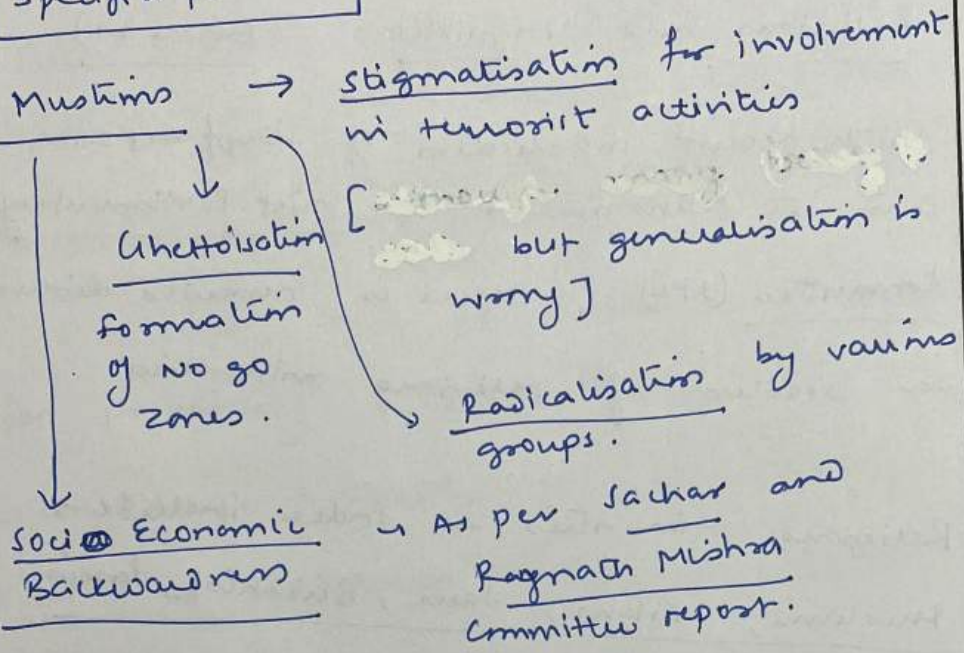 Muslims → stigmatisation for involvement
in terrorist activities
[
but generalisation is
wrong]
Ghettoisation
formation
of NO go
zones.
Radicalisation by various
groups.
Socio Economic
Backwardness
As per Sachar and
Ragnath Mishra
Committee report.